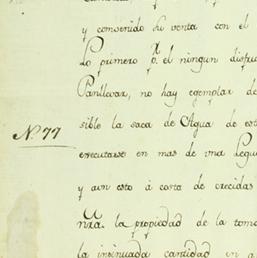 y convenido su venta con el
Lo primero pr. el ningun disfru
Panllevar, no hay egemplar de
No. 77
sible la saca de Agua de est
executarse en mas de una Legu
y aun esto á costa de crecidas
la propiedad de la tome
la insinuada cantidad en a